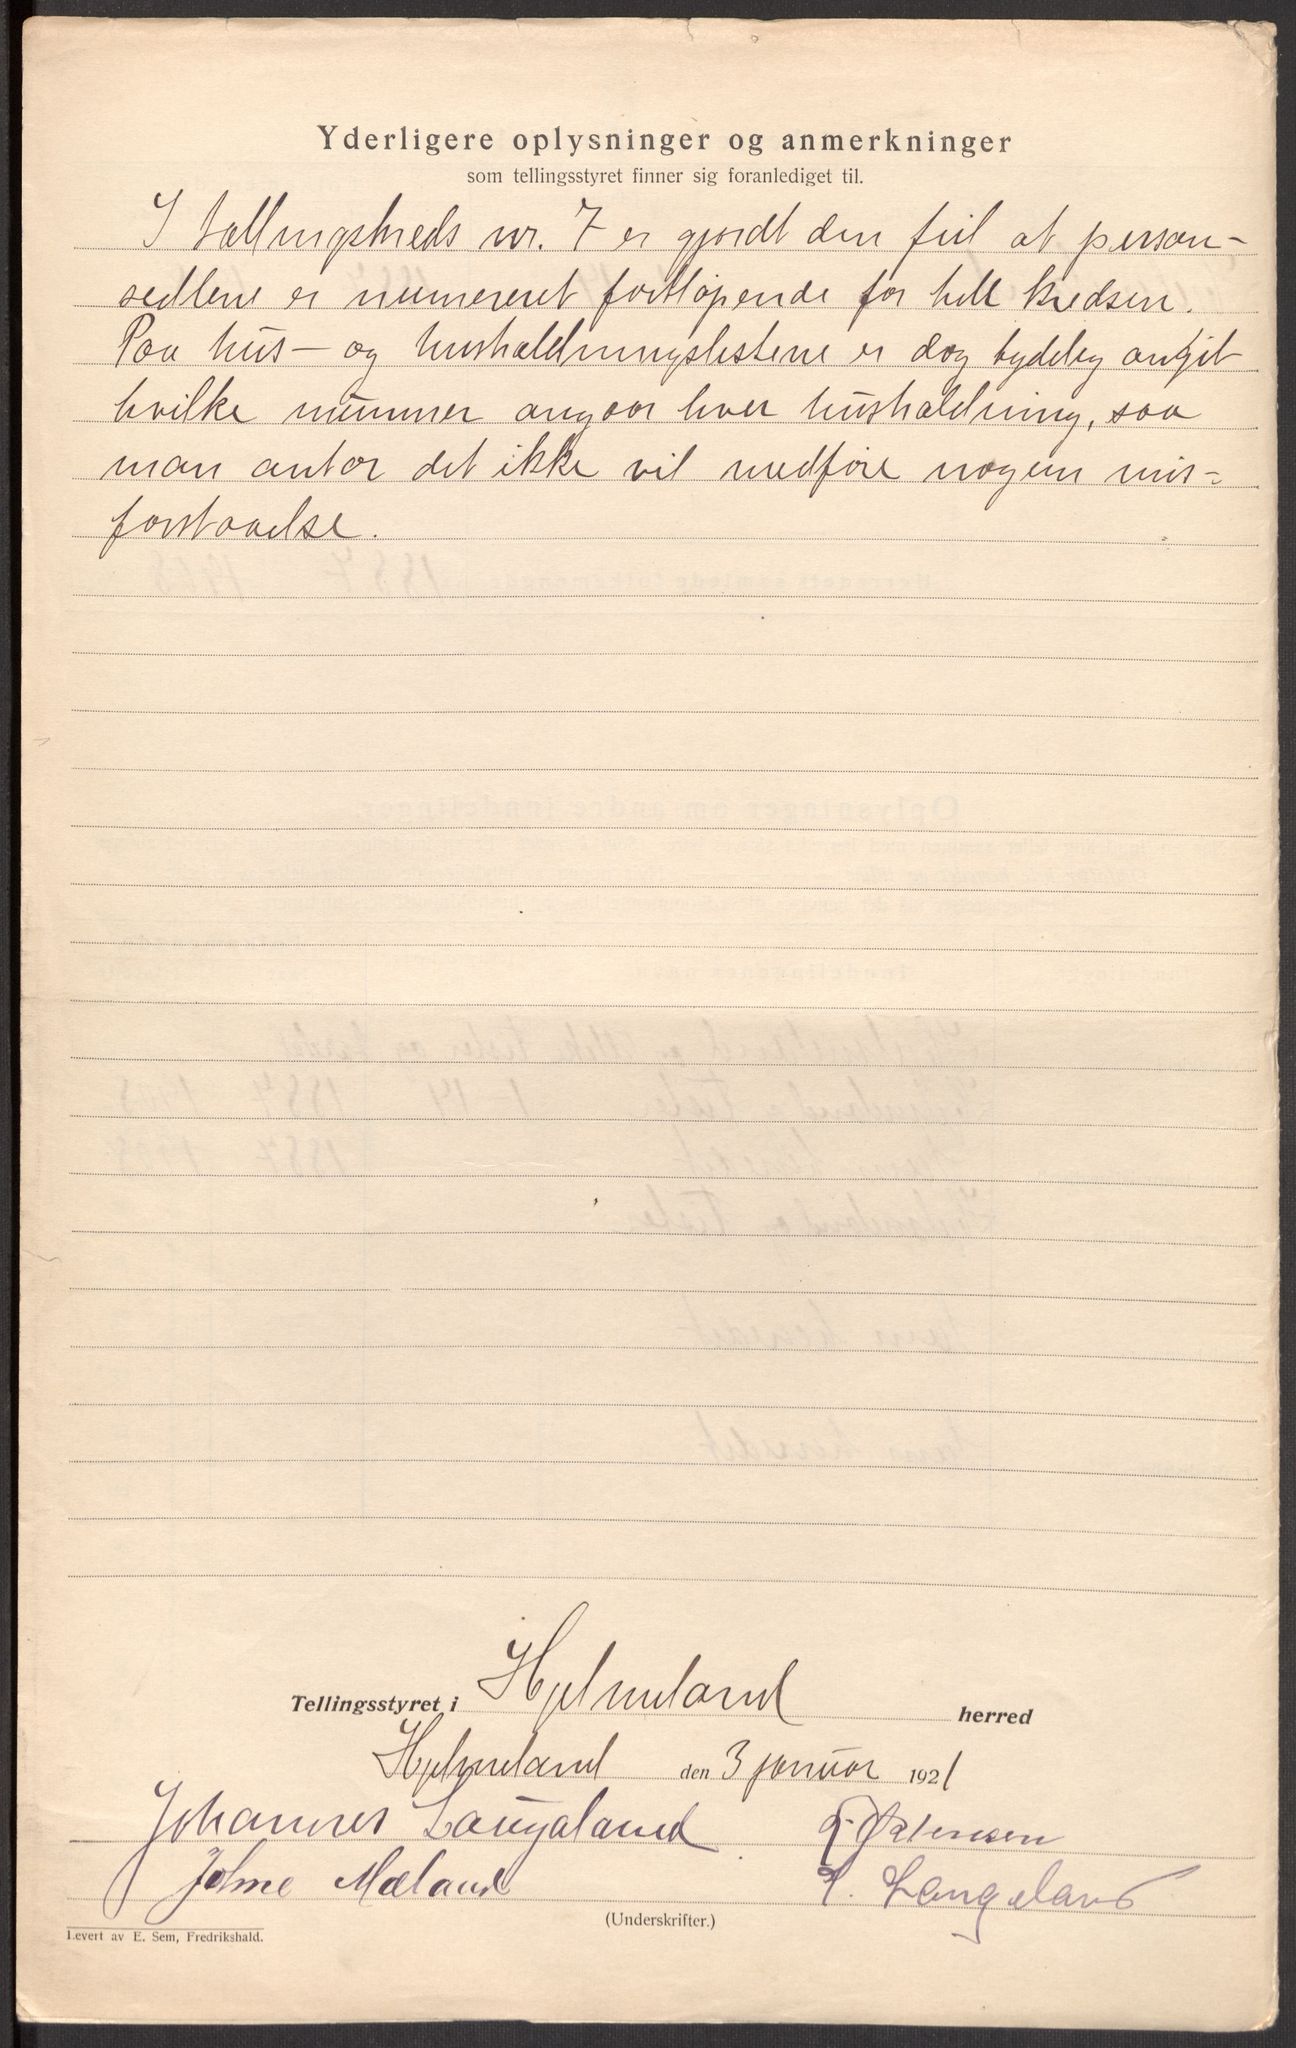 Yderligere oplysninger og anmerkninger
som tellingsstyret finner sig foranlediget til.
I tællingskreds nr. 7 er gjordt den feil at person-
sedlene er numereret fortløpende for hele kredsen.
Paa hus- og husholdningslistene er dog tydelig angit
hvilke nummer angaar hver husholdning, saa
man antar det ikke vil medføre nogen mis-
forstaaelse.
Tellingsstyret i Hjelmeland herred
Hjelmeland den 3 januar 1921
Johannes Laugaland
Johne Mæland
E. Langeland
(Underskrifter.)
Levert av E. Sem, Fredrikshald.